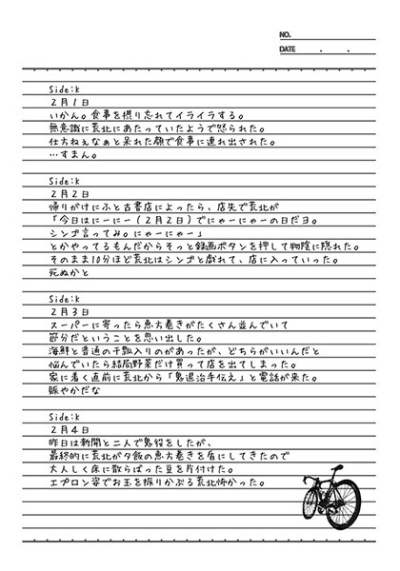 NO.
DATE . .
Side:k
2月1日
いかん。食事を摂り忘れてイライラする。
無意識に荒北にあたっていたようで怒られた。
仕方ねぇなぁと呆れた顔で食事に連れ出された。
…すまん。
Side:k
2月2日
帰りがけにふと古書店によったら、店先で荒北が
「今日はにーにー(2月2日)でにゃーにゃーの日だヨ。
シンゴ言ってみ。にゃーにゃー」
とかやってるもんだからそっと録画ボタンを押して物陰に隠れた。
そのまま10分ほど荒北はシンゴと戯れて、店に入っていった。
死ぬかと
Side:k
2月3日
スーパーに寄ったら恵方巻きがたくさん並んでいて
節分だということを思い出した。
海鮮と普通の干瓢入りのがあったが、どちらがいいんだと
悩んでいたら結局野菜だけ買って店を出てしまった。
家に着く直前に荒北から「鬼退治手伝え」と電話が来た。
賑やかだな
Side:k
2月4日
昨日は新開と二人で鬼役をしたが、
最終的に荒北が夕飯の恵方巻きを盾にしてきたので
大人しく床に散らばった豆を片付けた。
エプロン姿でお玉を振りかぶる荒北怖かった。